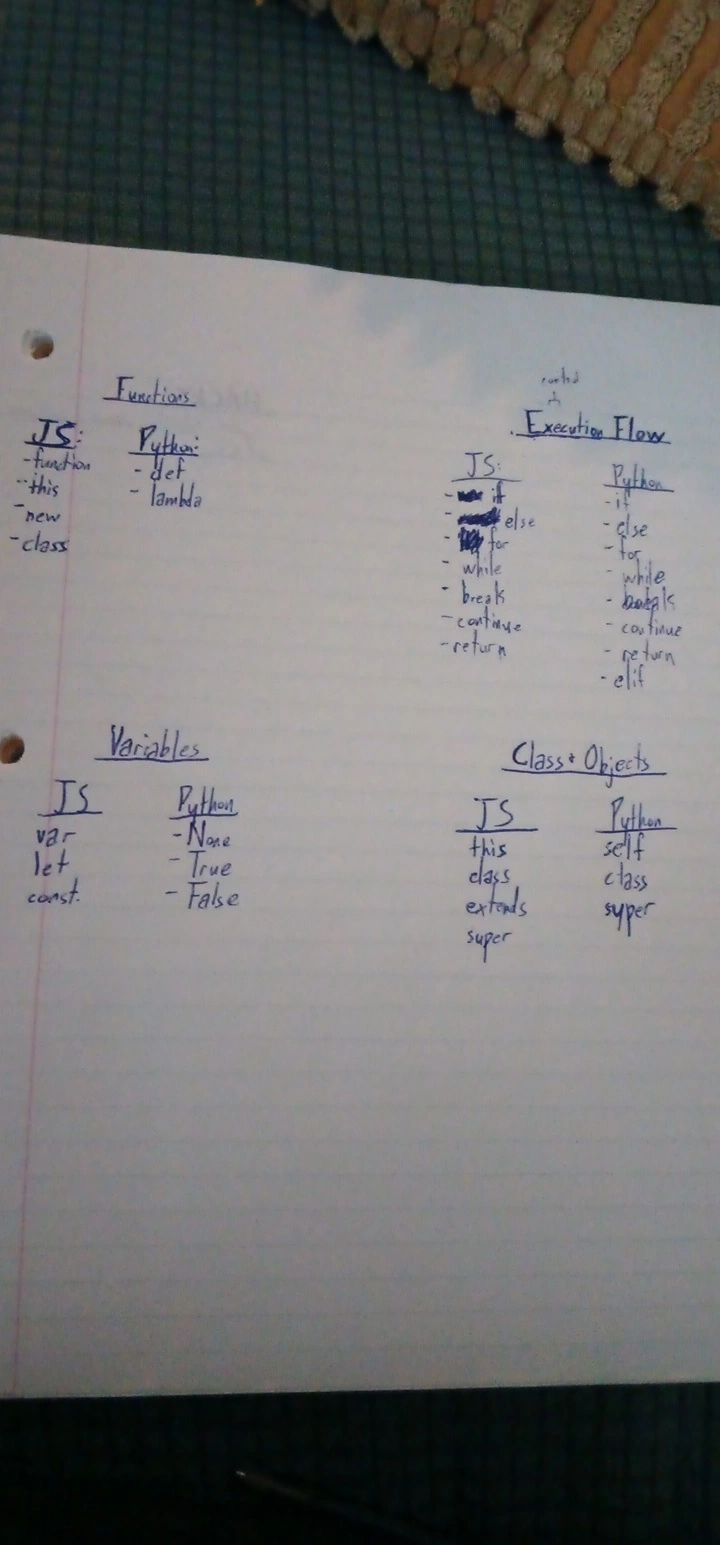 Functions
JS:
- function
- this
- new
- class
Python:
- def
- lambda
control
Execution Flow
JS:
- if
- else
- for
- while
- break
- continue
- return
Python
- if
- else
- for
- while
- continue
- return
- elif
Variables
JS
var
let
const.
Python
- None
- True
- False
Class + Objects
JS
this
class
extends
super
Python
self
class
syper